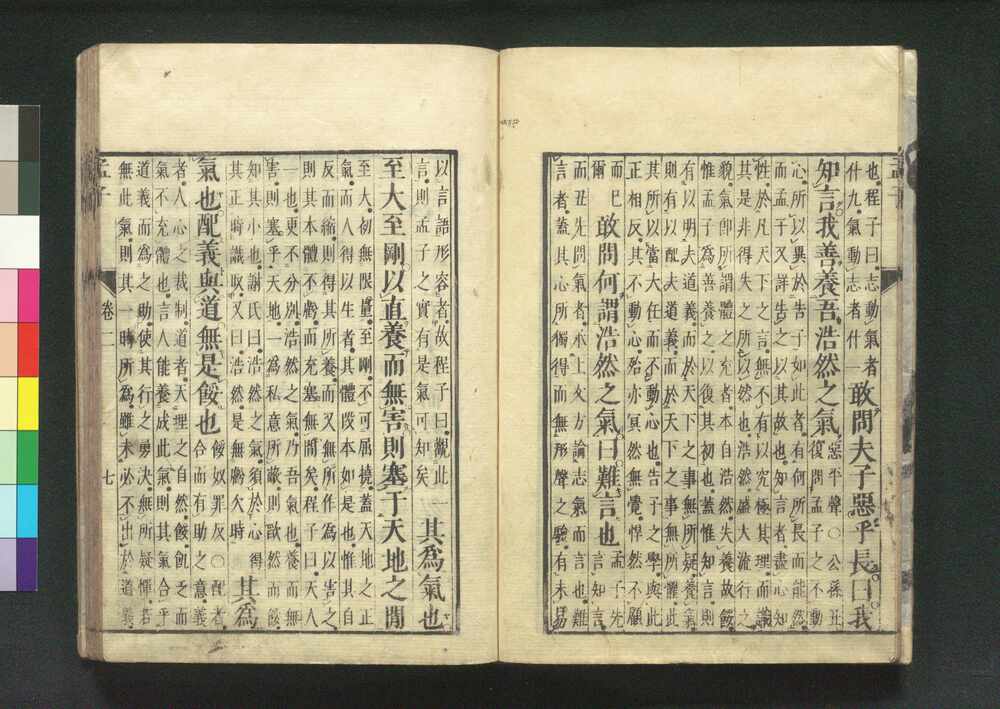 也。程子曰。志動氣者
什九。氣動志者什一
敢問夫子惡乎長曰我
知言我善養吾浩然之氣
惡平聲。○公孫丑
復問孟子之不動
心所以異於告子如此者。有何所長而能然。
而孟子又詳告之以其故也。知言者。盡心知
性。於凡天下之言。無不有以究極其理。而識
其是非得失之所以然也。浩然。盛大流行之
貌。氣。即所謂體之充者。本自浩然。失養故餒。
惟孟子為善養之。以復其初也。蓋惟知言。則
有以明夫道義。而於天下之事無所疑。養氣
則有以配夫道義。而於天下之事無所懼。此
其所以當大任而不動心也。告子之學。與此
正相反。其不動心。殆亦冥然無覺。悍然不顧
而已
爾
敢問何謂浩然之氣曰難言也
孟子先
言知言
而丑先問氣者。承上文方論志氣而言也。難
言者。蓋其心所獨得。而無形聲之驗。有未易
孟子
以言語形容者。故程子曰。觀此一
言。則孟子之實有是氣可知矣
其爲氣也
至大至剛以直養而無害則塞于天地之閒
至大。初無限量。至剛。不可屈撓。蓋天地之正
氣。而人得以生者。其體段本如是也。惟其自
反而縮。則得其所養。而又無所作為以害之。
則其本體不虧。而充塞無間矣。程子曰。天人
一也。更不分別。浩然之氣。乃吾氣也。養而無
害。則塞乎天地。一為私意所蔽。則歉然而餒。
知其小也。謝氏曰。浩然之氣。須於心得
其正時識取。又曰。浩然是無虧欠時
其爲
氣也配義與道無是餒也
餒。奴罪反。○配者。
合而有助之意。義
者。人心之裁制。道者。天理之自然。餒。飢乏而
氣不充體也。言人能養成此氣。則其氣合乎
道義而為之助。使其行之勇決。無所疑憚。若
無此氣。則其一時所為。雖未必不出於道義。
孟子
卷二
七